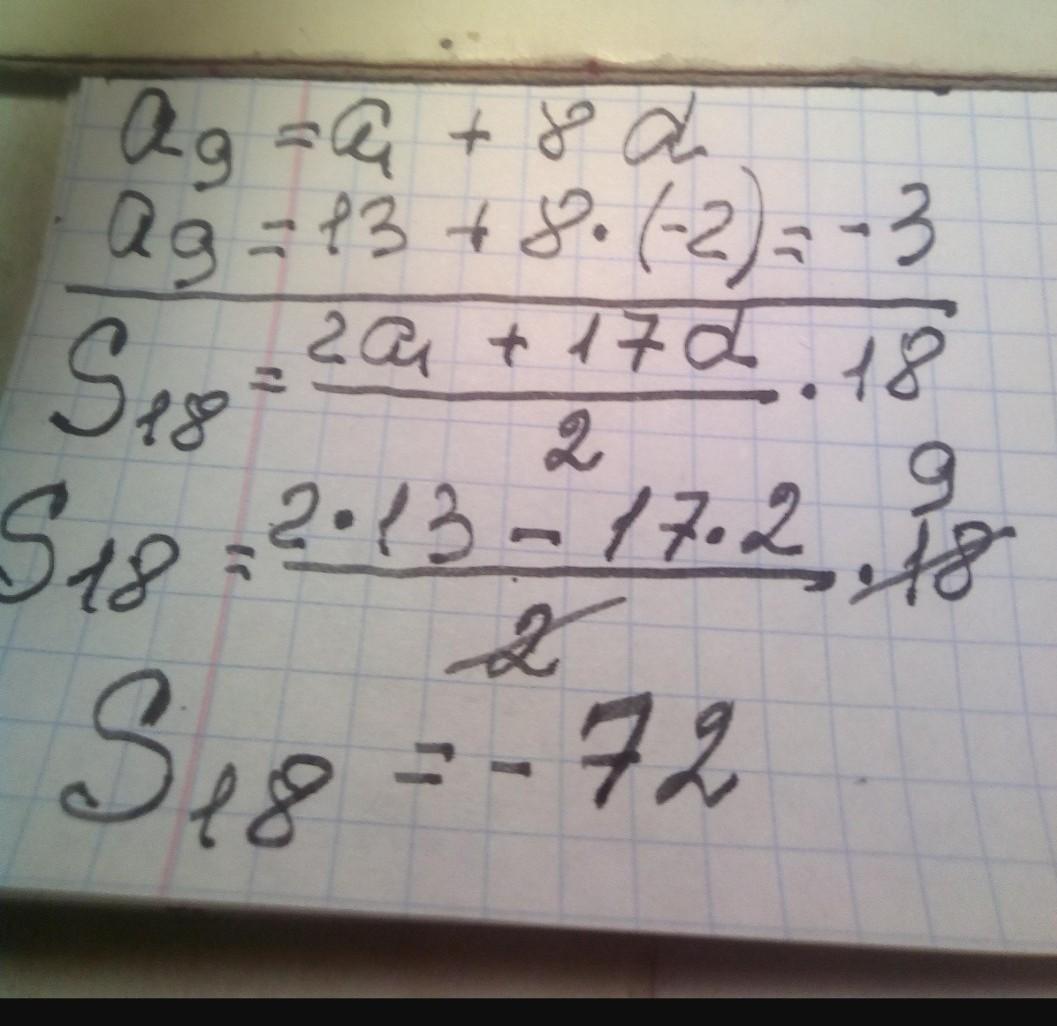 a₉ = a₁ + 8 d
a₉ = 13 + 8 · (-2) = -3
S₁₈ = (2a₁ + 17d)/2 · 18
S₁₈ = (2·13 - 17·2)/2 · 18 9
S₁₈ = -72